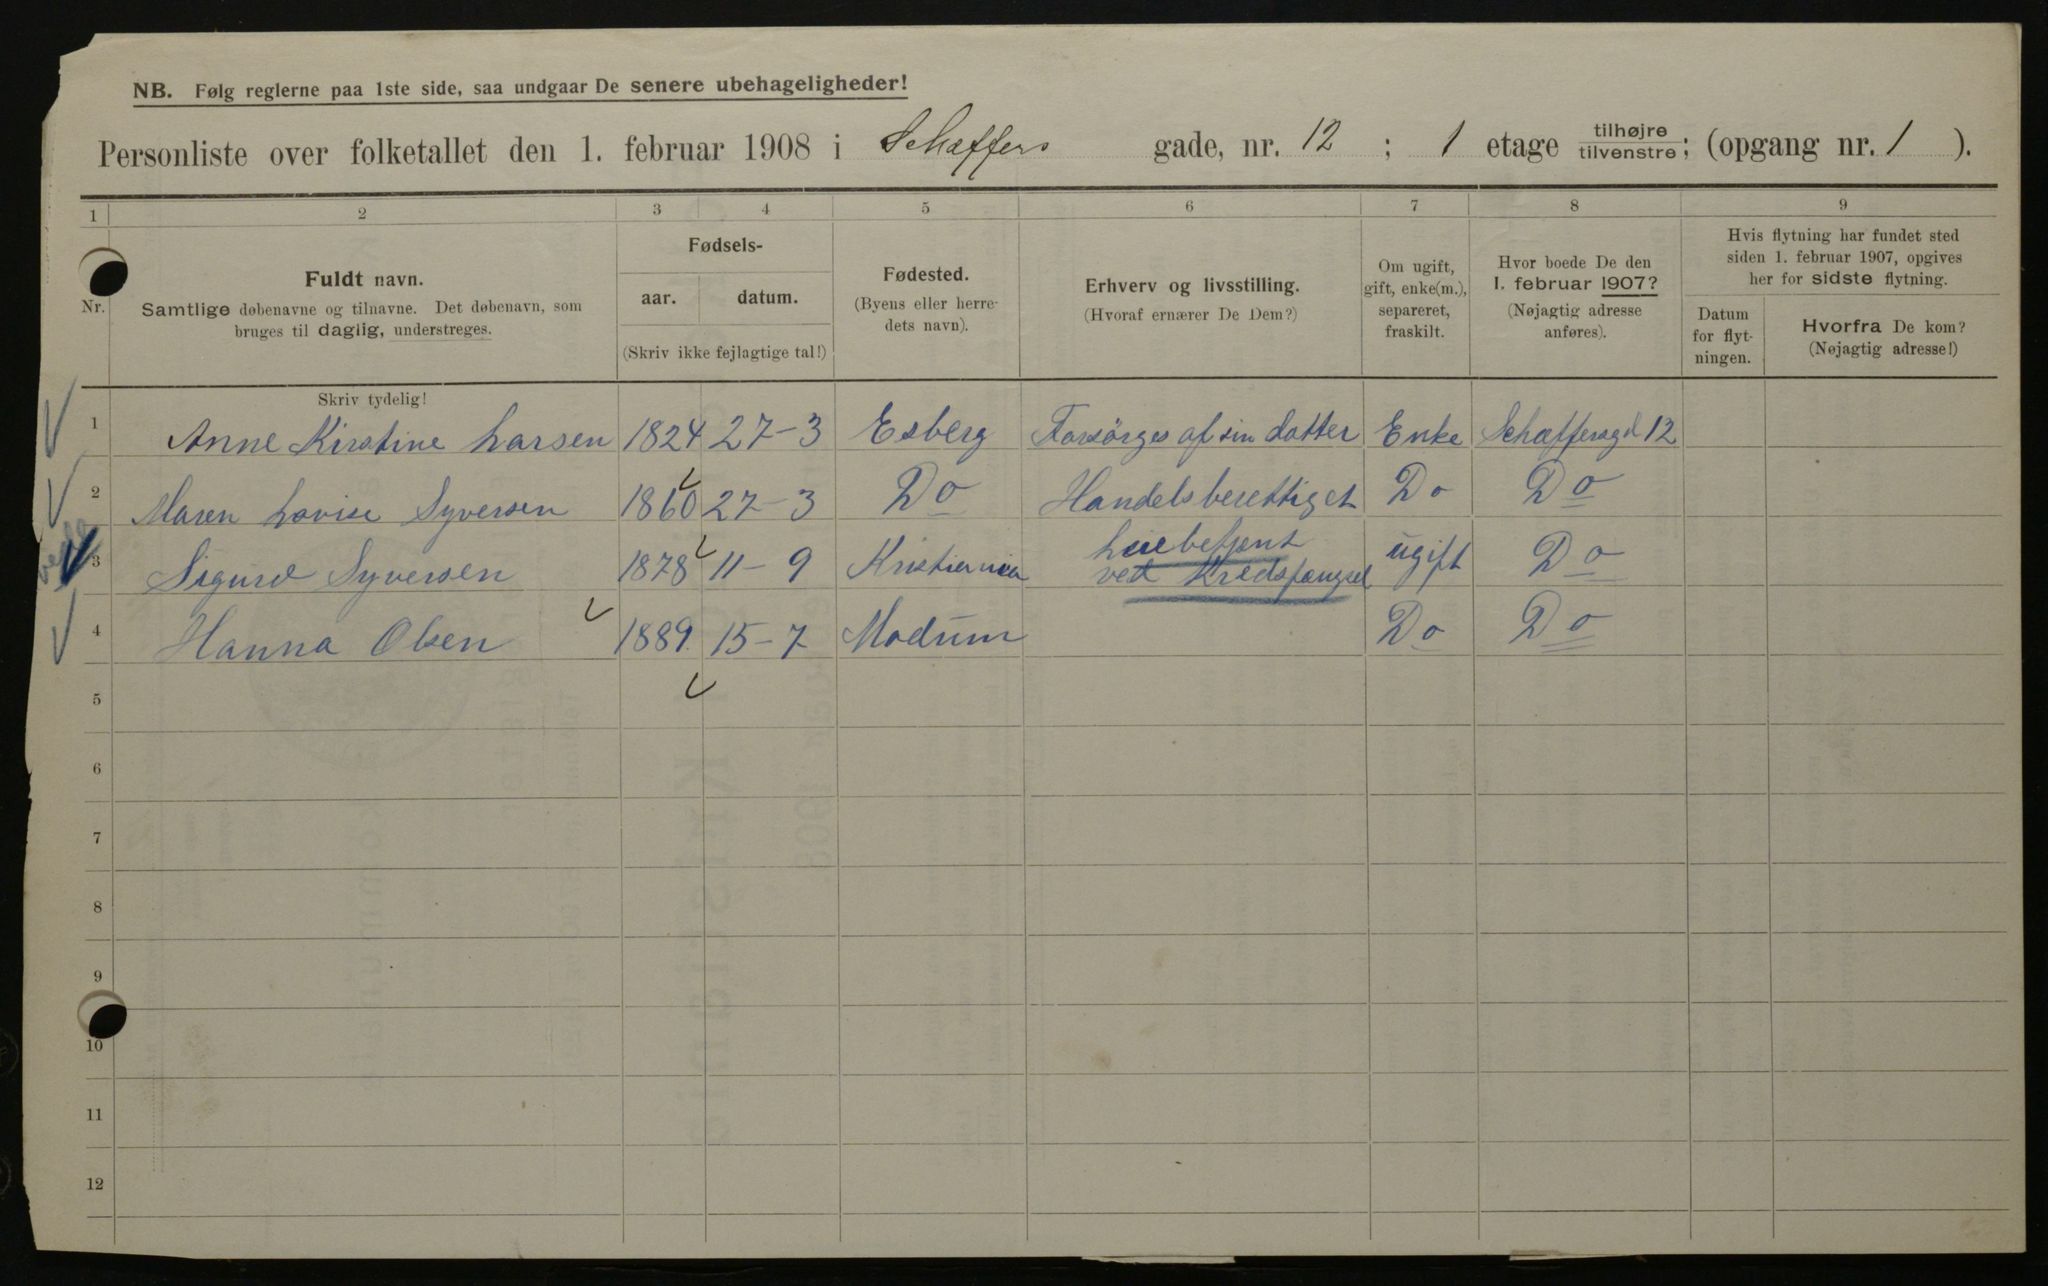 NB. Følg reglerne paa 1ste side, saa undgaar De senere ubehageligheder!
Personliste over folketallet den 1. februar 1908 i Schæffers gade, nr. 12 ; 1 etage tilhøjre tilvenstre; (opgang nr. 1 ).
1 2 3 4 5 6 7 8 9
Nr.
Fuldt navn.
Samtlige døbenavne og tilnavne. Det døbenavn, som
bruges til daglig, understreges.
Skriv tydelig!
Fødsels-
aar. datum.
(Skriv ikke fejlagtige tal!)
Fødested.
(Byens eller herre-
dets navn).
Erhverv og livsstilling.
(Hvoraf ernærer De Dem?)
Om ugift,
gift, enke(m.),
separeret,
fraskilt.
Hvor boede De den
1. februar 1907?
(Nøjagtig adresse
anføres).
Hvis flytning har fundet sted
siden 1. februar 1907, opgives
her for sidste flytning.
Datum
for flyt-
ningen.
Hvorfra De kom?
(Nøjagtig adresse!)
1 Anne Kirstine Larsen 1824 27-3 Esberg Forsörges af sin datter Enke Schæffersgd 12
2 Maren Lovise Syversen 1860 27-3 Do Handelsberettiget Do Do
3 Sigurd Syversen 1878 11-9 Kristiania
ved Kredsfængsel ugift Do
4 Hanna Olsen 1889. 15-7 Modum Do Do
5
6
7
8
9
10
11
12